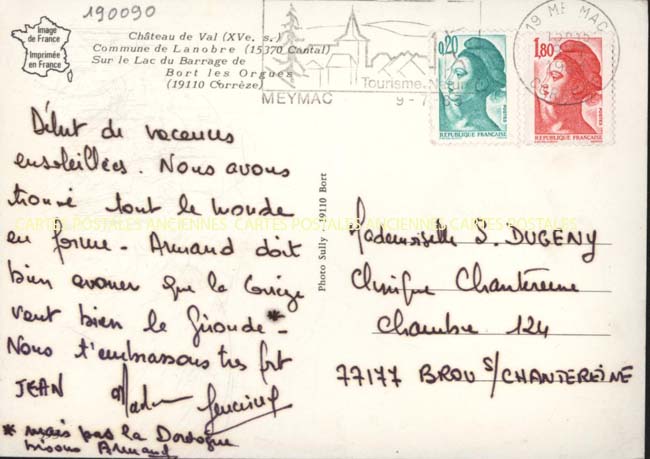 190090
Image
de France
Imprimée
en France
Château de Val (XVe. s.)
Commune de Lanobre (15370 Cantal)
Sur le Lac du Barrage de
Bort les Orgues
(19110 Corrèze)
MEYMAC
Tourisme
9-7
19 MEYMAC
0,20
REPUBLIQUE FRANÇAISE
1,80
REPUBLIQUE FRANÇAISE
Début de vacances
ensoleillées. Nous avons
trouvé tout le monde
en forme - Armand doit
bien avouer que la Corrèze
vaut bien la Gironde * -
Nous t'embrassons très fort
JEAN
* mais pas la Dordogne
bisous Armand
Photo Sully - 19110 Bort
Mademoiselle S. DUGENY
Clinique Chantereine
Chambre 124
77177 BROU S/CHANTEREINE
CARTES POSTALES ANCIENNES CARTES POSTALES ANCIENNES CARTES POSTALES ANCIENNES